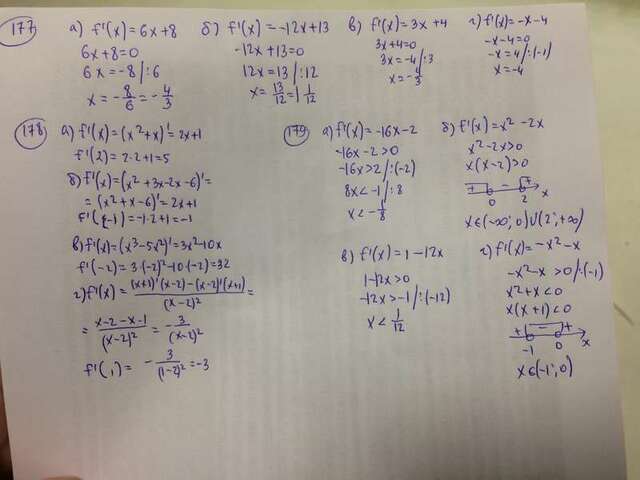 177
а) f'(x) = 6x + 8
6x + 8 = 0
6x = -8 /:6
x = -8/6 = -4/3
б) f'(x) = -12x + 13
-12x + 13 = 0
12x = 13 /:12
x = 13/12 = 1 1/12
в) f'(x) = 3x + 4
3x + 4 = 0
3x = -4 /:3
x = -4/3
г) f'(x) = -x - 4
-x - 4 = 0
-x = 4 /·(-1)
x = -4
178
а) f'(x) = (x² + x)' = 2x + 1
f'(2) = 2·2 + 1 = 5
б) f'(x) = (x² + 3x - 2x - 6)' =
= (x² + x - 6)' = 2x + 1
f'(-1) = -1·2 + 1 = -1
в) f'(x) = (x³ - 5x²)' = 3x² - 10x
f'(-2) = 3·(-2)² - 10·(-2) = 32
г) f'(x) = ((x+1)'(x-2) - (x-2)'(x+1))/(x-2)² =
= (x-2-x-1)/(x-2)² = -3/(x-2)²
f'(1) = -3/(1-2)² = -3
179
а) f'(x) = -16x - 2
-16x - 2 > 0
-16x > 2 /:(-2)
8x < -1 /:8
x < -1/8
б) f'(x) = x² - 2x
x² - 2x > 0
x(x - 2) > 0
+ - +
0 2 x
x∈(-∞; 0)∪(2; +∞)
в) f'(x) = 1 - 12x
1 - 12x > 0
-12x > -1 /:(-12)
x < 1/12
г) f'(x) = -x² - x
-x² - x > 0 /:(-1)
x² + x < 0
x(x + 1) < 0
+ - +
-1 0 x
x∈(-1; 0)